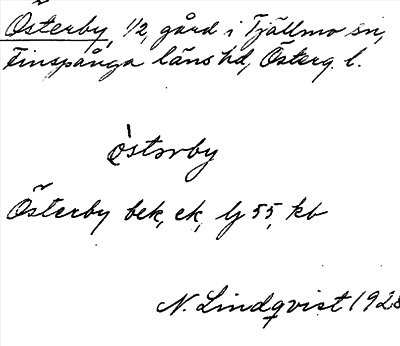 Österby, 1/2, gård i Tjällmo sn,
Finspånga läns hd, Österg. l.
österby
Österby bek, ek, lj 55, kb
N. Lindqvist 1928